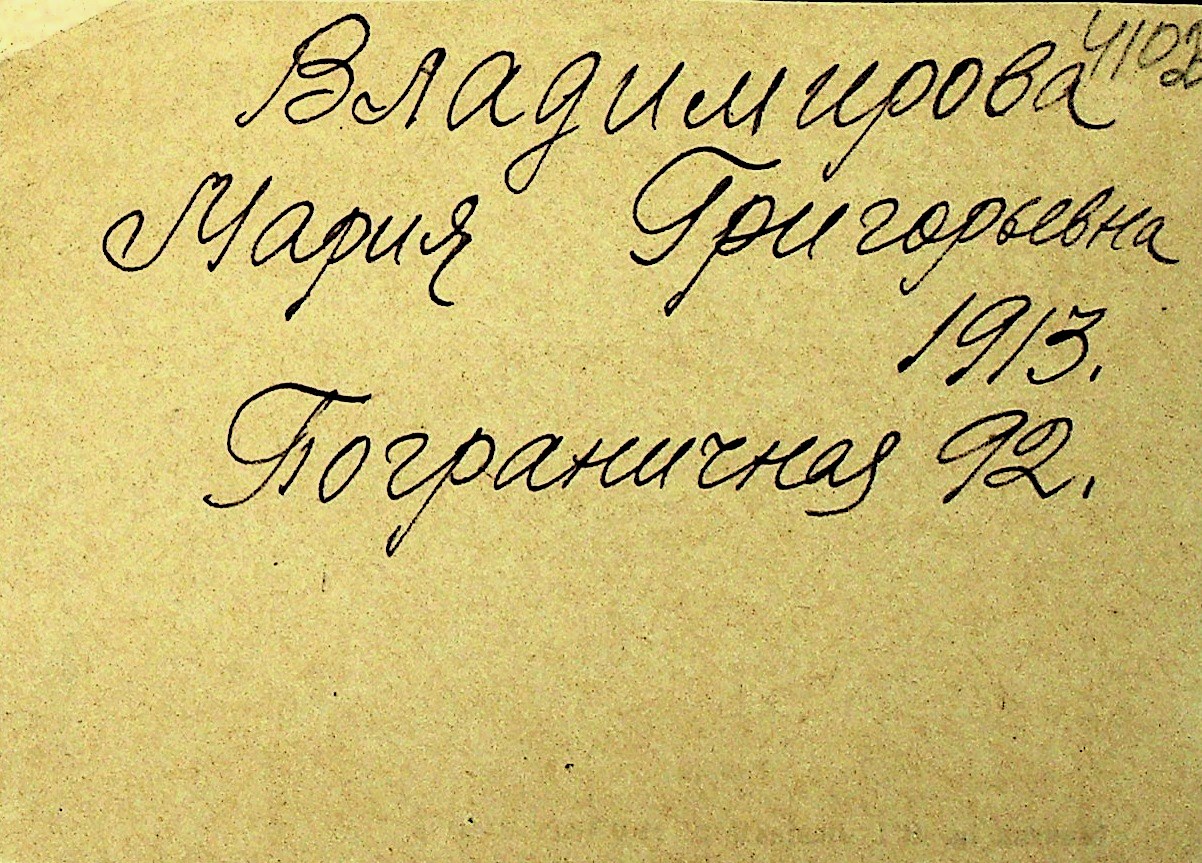 Владимирова
Мария Григорьевна
1913.
Пограничная 92.